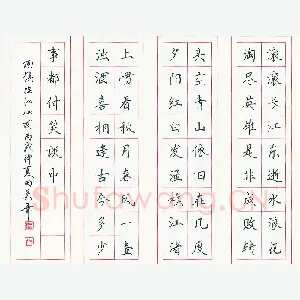 滚滚长江东逝水浪花
淘尽英雄是非成败转
头空青山依旧在几度
夕阳红白发渔樵江渚
上惯看秋月春风一壶
浊酒喜相逢古今多少
事都付笑谈中
杨慎临江仙
Shufawang.cn